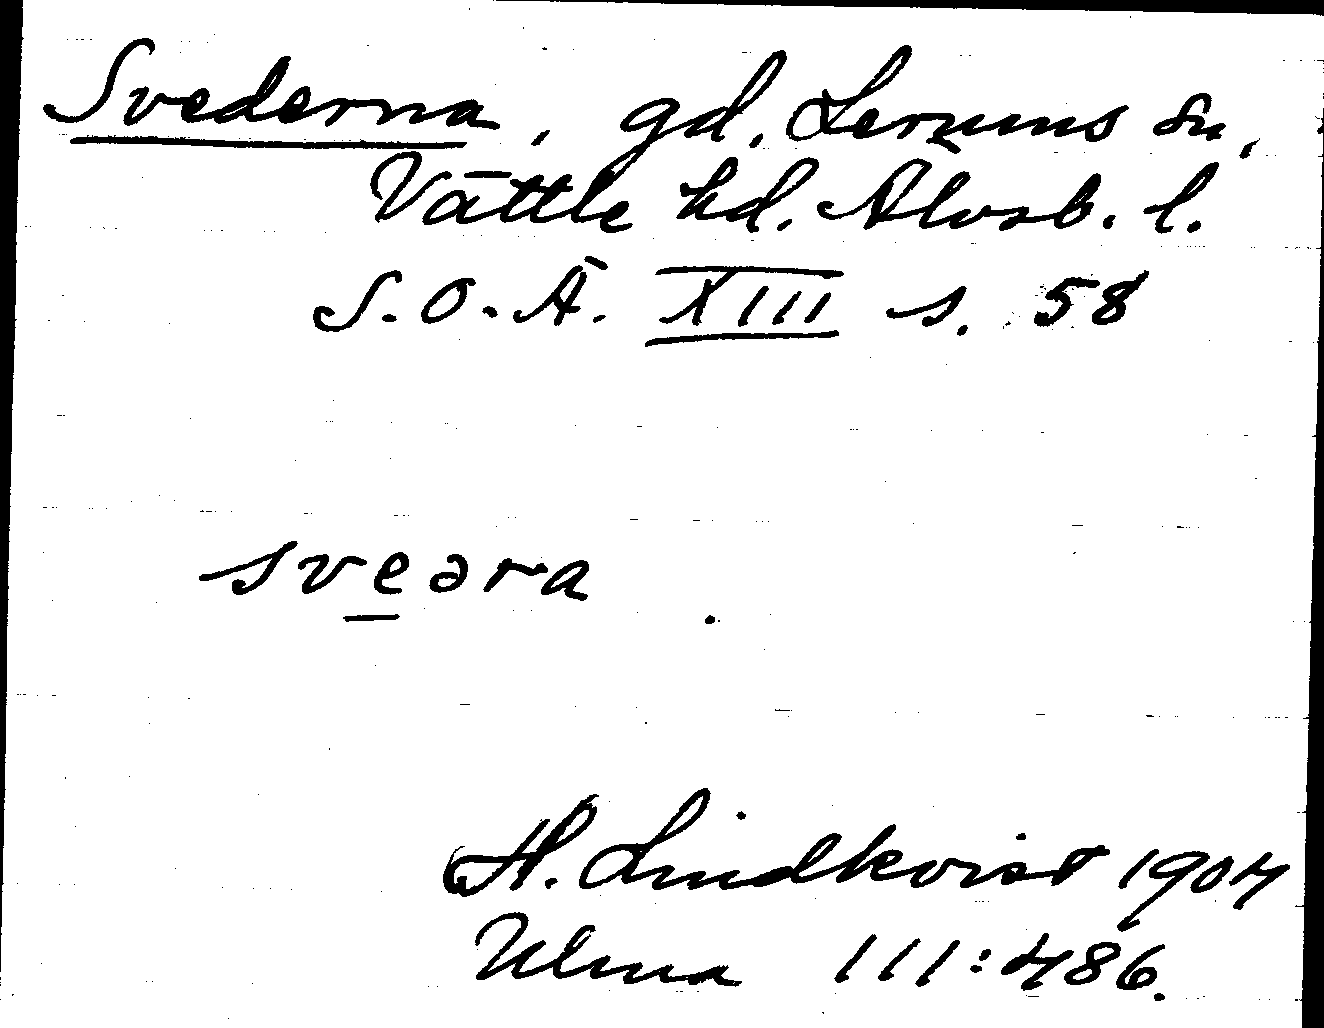 Svederna, gd. Lerums sn,
Vättle hd. Älvsb. l.
S.O.Ä. XIII s. 58
sveəra
H. Lindkvist 1904
Ulma 111:486.